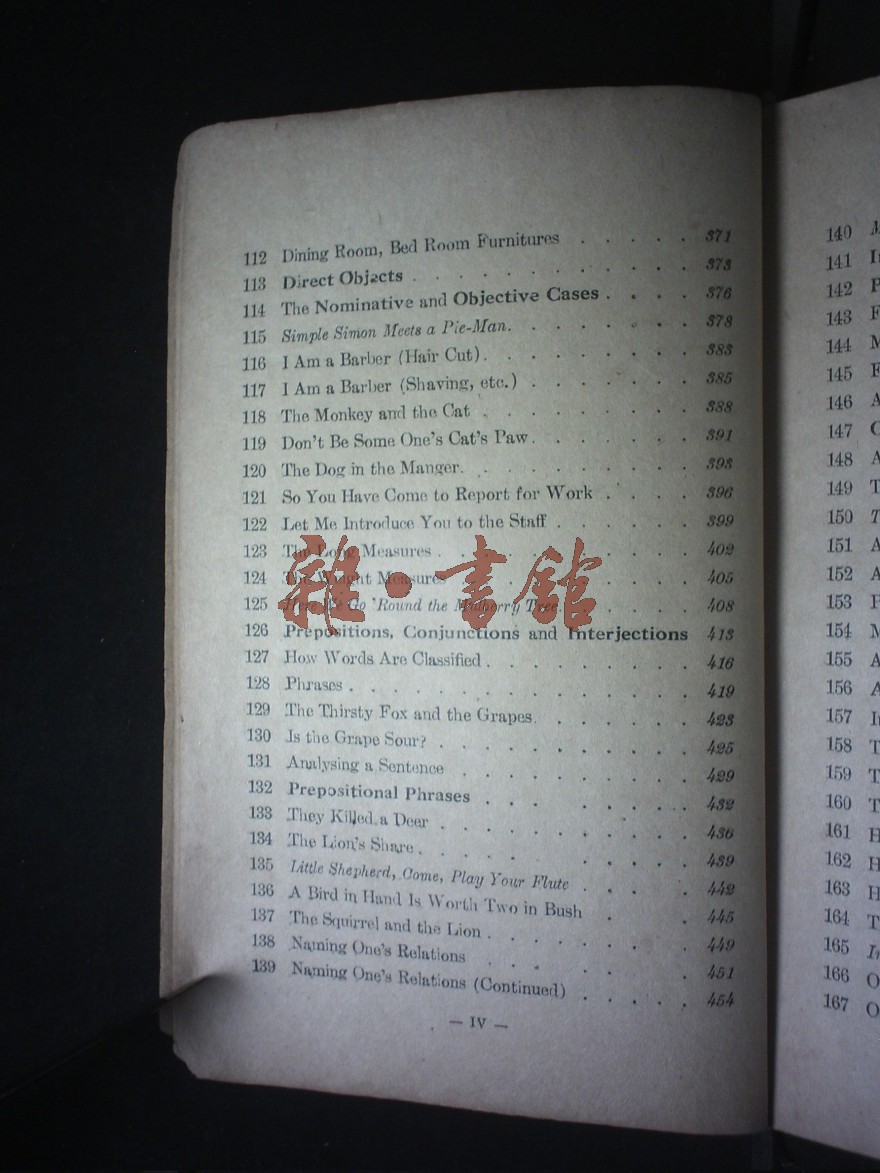 112 Dining Room, Bed Room Furnitures . . . . . 371
113 Direct Objects . . . . . . . . . . . . 373
114 The Nominative and Objective Cases . . . . 376
115 Simple Simon Meets a Pie-Man. . . . . . . . 378
116 I Am a Barber (Hair Cut). . . . . . . . . 383
117 I Am a Barber (Shaving, etc.) . . . . . . . 385
118 The Monkey and the Cat . . . . . . . . . 388
119 Don't Be Some One's Cat's Paw. . . . . . . 391
120 The Dog in the Manger. . . . . . . . . . 393
121 So You Have Come to Report for Work . . . . 396
122 Let Me Introduce You to the Staff . . . . . . 399
123 The Long Measures . . . . . . . . . . 402
124 The Weight Measures . . . . . . . . . 405
125 Here We Go 'Round the Mulberry Tree. . . . . . 408
126 Prepositions, Conjunctions and Interjections 413
127 How Words Are Classified . . . . . . . . . 416
128 Phrases . . . . . . . . . . . . . . 419
129 The Thirsty Fox and the Grapes. . . . . . . 423
130 Is the Grape Sour? . . . . . . . . . . . 425
131 Analysing a Sentence . . . . . . . . . . 429
132 Prepositional Phrases . . . . . . . . . 432
133 They Killed a Deer . . . . . . . . . . . 436
134 The Lion's Share . . . . . . . . . . . 439
135 Little Shepherd, Come, Play Your Flute . . . . 442
136 A Bird in Hand Is Worth Two in Bush . . . . 445
137 The Squirrel and the Lion . . . . . . . . 449
138 Naming One's Relations . . . . . . . . 451
139 Naming One's Relations (Continued) . . . . . 454
— IV —
雜·書館
140
141
142
143
144
145
146
147
148
149
150
151
152
153
154
155
156
157
158
159
160
161
162
163
164
165
166
167